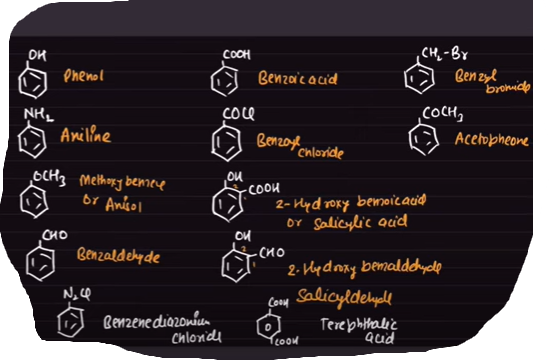 OH
Phenol
COOH
Benzoic acid
CH2-Br
Benzyl
bromide
NH2
Aniline
COCl
Benzoyl
chloride
COCH3
Acetopheone
OCH3
Methoxy benzene
Or Anisol
OH
2
COOH
1
2-Hydroxy benzoic acid
Or Salicylic acid
CHO
Benzaldehyde
OH
2
CHO
1
2-Hydroxy benzaldehyde
Salicyldehyde
N2Cl
Benzenediazonium
chloride
COOH
COOH
Terephthalic
acid